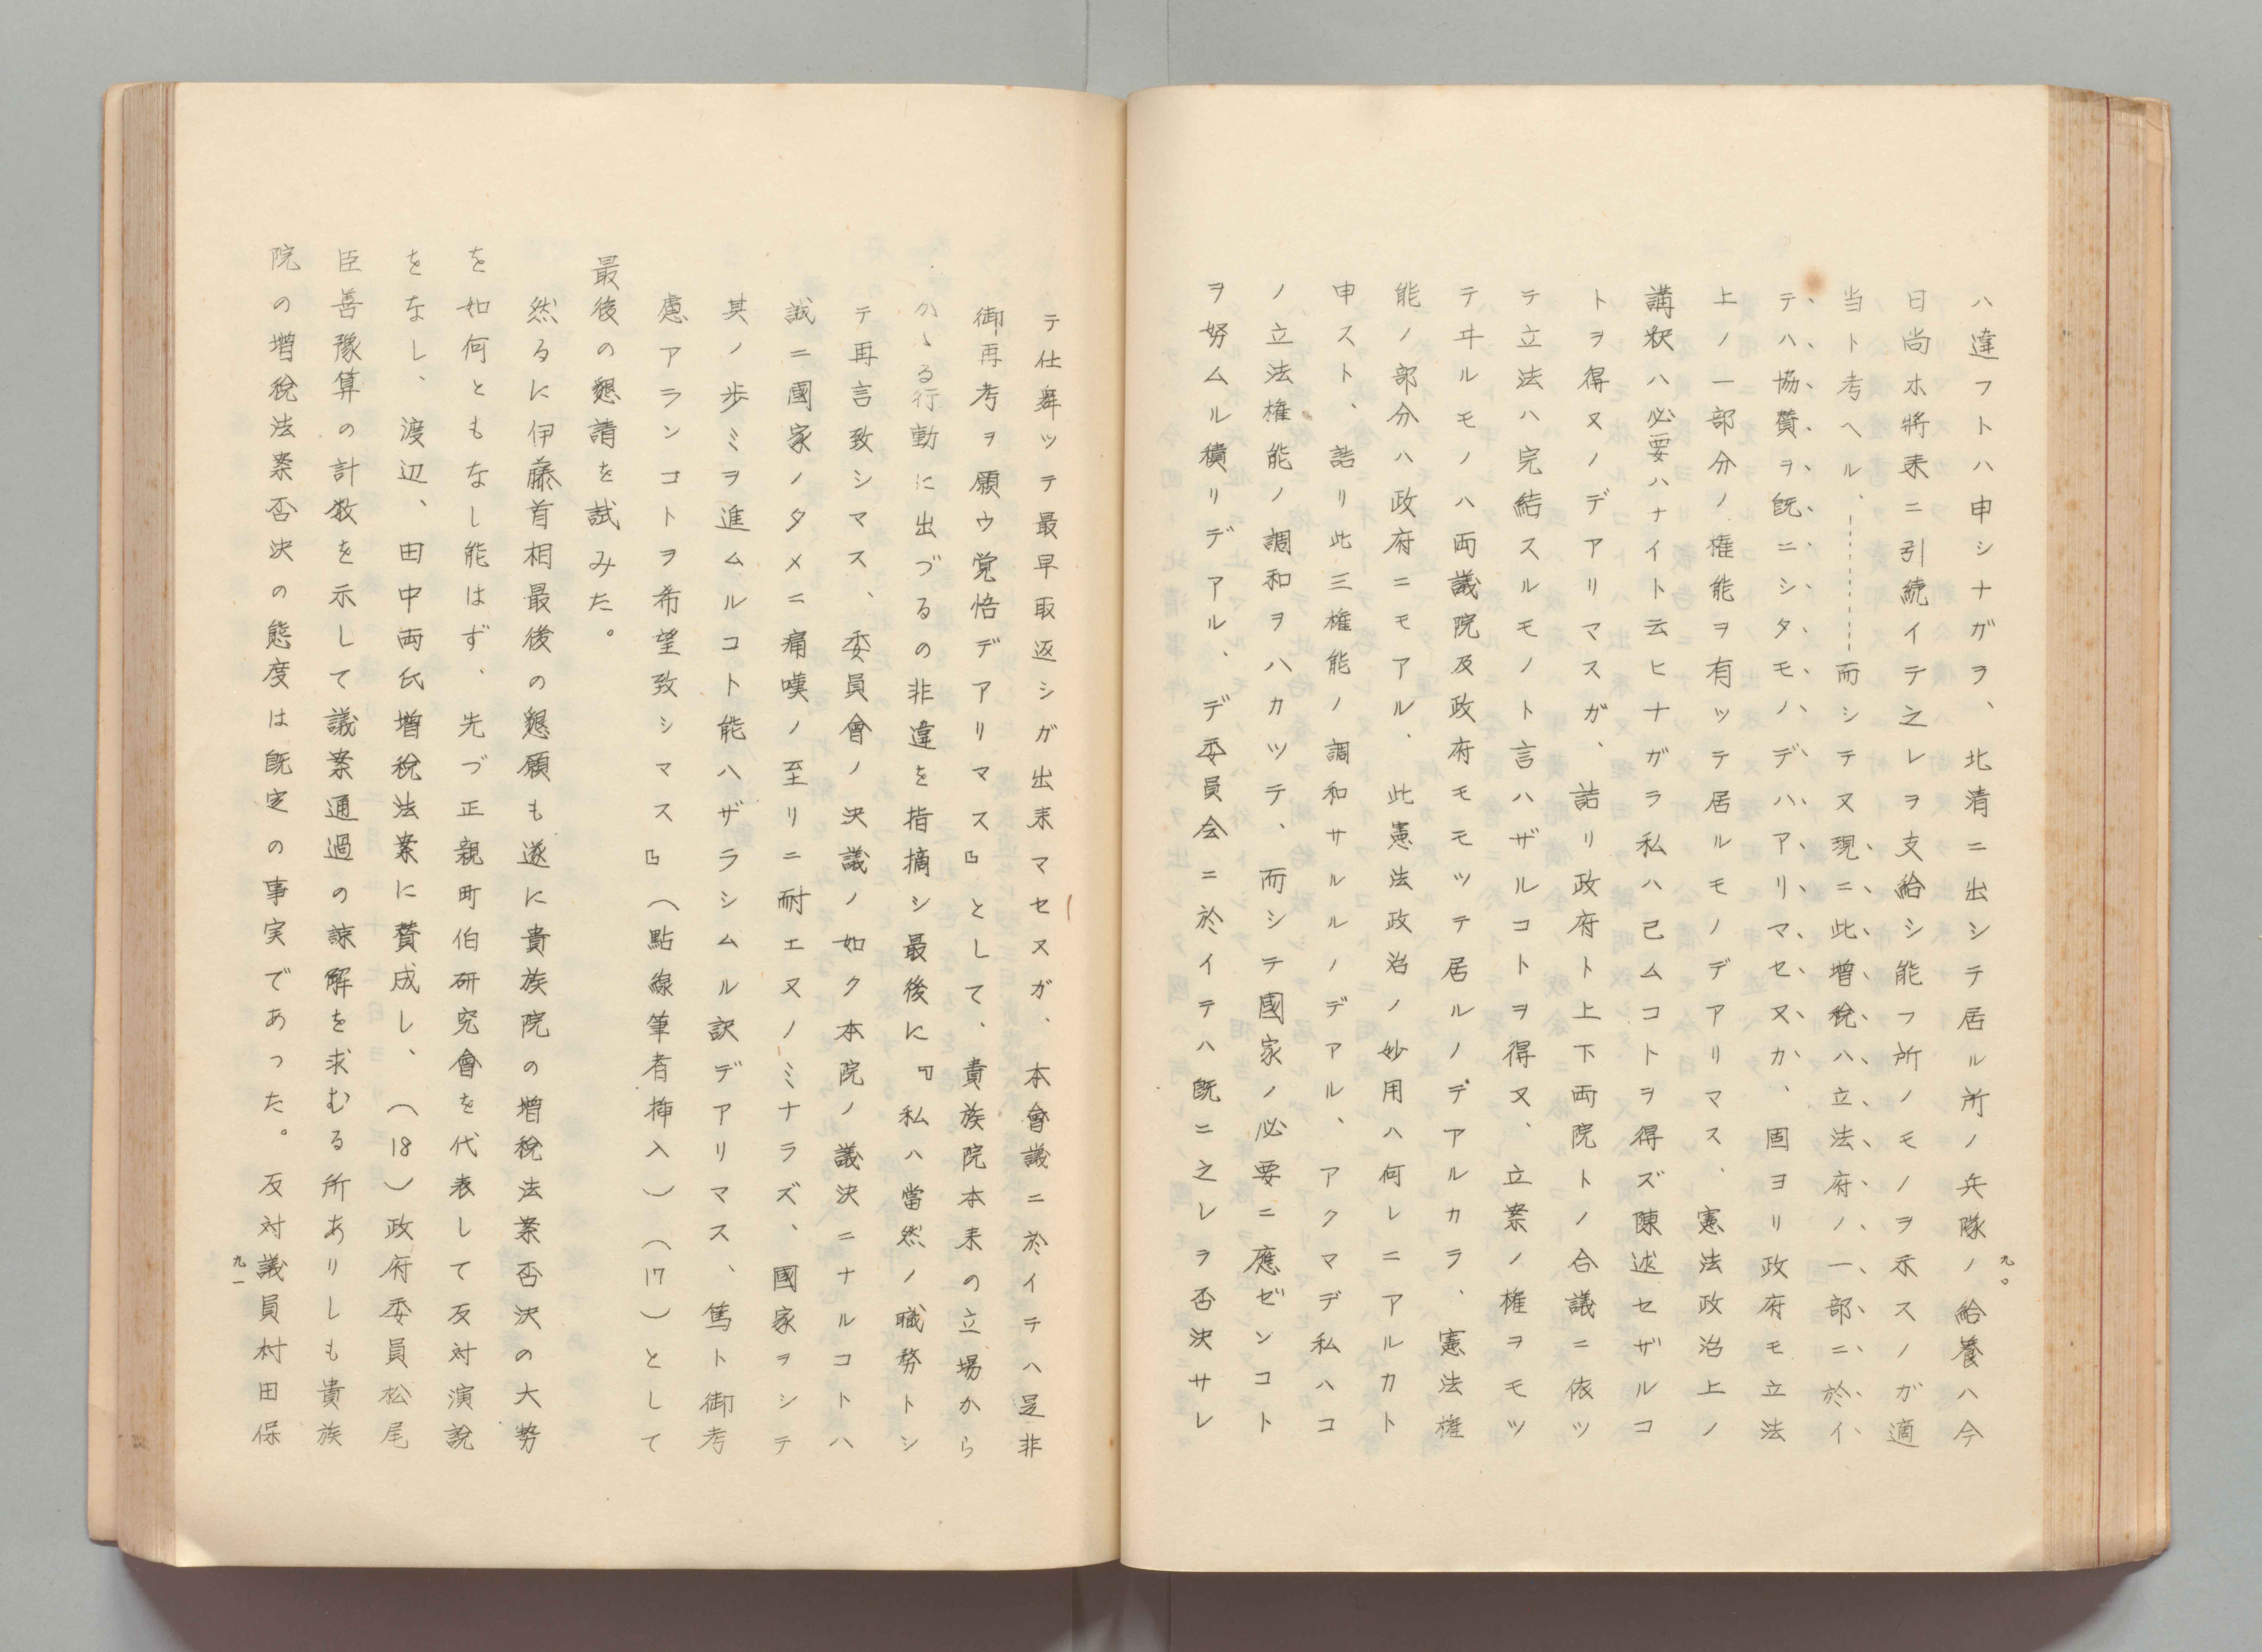 九〇
ハ違フトハ申シナガヲ、北清ニ出シテ居ル所ノ兵隊ノ給養ハ今
日尚ホ將来ニ引続イテ之レヲ支給シ能フ所ノモノヲ示スノガ適
当ト考ヘル、………而シテ又現ニ此増税ハ立法府ノ一部ニ於イ
テハ協賛ヲ既ニシタモノデハアリマセヌカ、固ヨリ政府モ立法
上ノ一部分ノ権能ヲ有ッテ居ルモノデアリマス、憲法政治上ノ
講釈ハ必要ハナイト云ヒナガラ私ハ已ムコトヲ得ズ陳述セザルコ
トヲ得ヌノデアリマスガ、詰リ政府ト上下両院トノ合議ニ依ッ
テ立法ハ完結スルモノト言ハザルコトヲ得ヌ、立案ノ権ヲモツ
テヰルモノハ両議院及政府モモッテ居ルノデアルカラ、憲法権
能ノ部分ハ政府ニモアル、此憲法政治ノ妙用ハ何レニアルカト
申スト、詰リ此三権能ノ調和サルルノデアル、アクマデ私ハコ
ノ立法権能ノ調和ヲハカツテ、而シテ國家ノ必要ニ應ゼンコト
ヲ努ムル積リデアル、デ委員会ニ於イテハ既ニ之レヲ否決サレ
テ仕舞ッテ最早取返シガ出来マセヌガ、本會議ニ於イテハ是非
御再考ヲ願ウ覚悟デアリマス』として、貴族院本来の立場から
かゝる行動に出づるの非違を指摘シ最後に『私ハ當然ノ職務トシ
テ再言致シマス、委員會ノ決議ノ如ク本院ノ議決ニナルコトハ
誠ニ國家ノタメニ痛嘆ノ至リニ耐エヌノミナラズ、國家ヲシテ
其ノ歩ミヲ進ムルコト能ハザラシムル訳デアリマス、篤ト御考
慮アランコトヲ希望致シマス』（點線筆者挿入）（17）として
最後の懇請を試みた。
然るに伊藤首相最後の懇願も遂に貴族院の増税法案否決の大勢
を如何ともなし能はず、先づ正親町伯研究會を代表して反対演説
をなし、渡辺、田中両氏増税法案に賛成し、（18）政府委員松尾
臣善豫算の計数を示して議案通過の諒解を求むる所ありしも貴族
院の増税法案否決の態度は既定の事実であった。反対議員村田保
九一